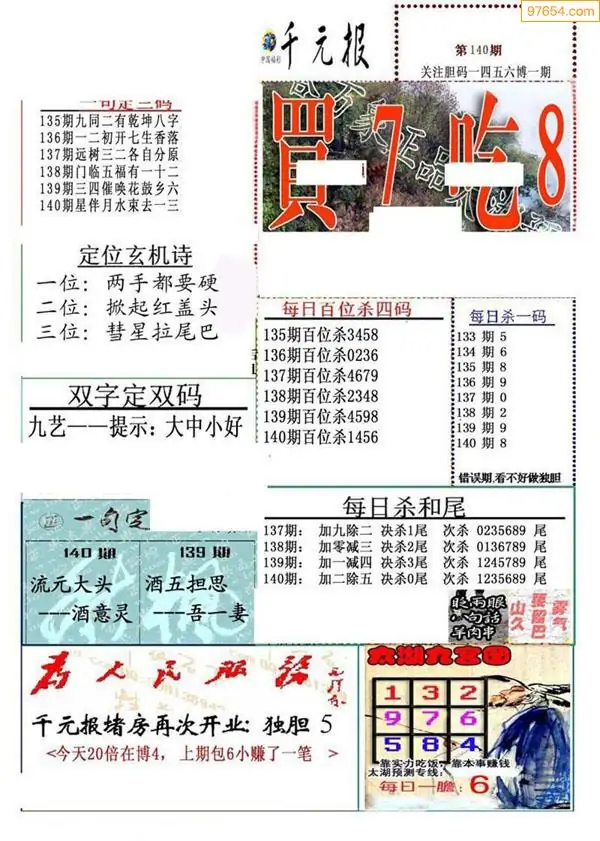 97654.com
中国福彩
千元报
第140期
关注胆码一四五六博一期
一句定三码
135期九同二有乾坤八字
136期一二初开七生香落
137期远树三二各自分原
138期门临五福有一十二
139期三四催唤花鼓乡六
140期星伴月水束去一三
買7吃8
定位玄机诗
一位：两手都要硬
二位：掀起红盖头
三位：彗星拉尾巴
每日百位杀四码
135期百位杀3458
136期百位杀0236
137期百位杀4679
138期百位杀2348
139期百位杀4598
140期百位杀1456
每日杀一码
133 期 5
134 期 6
135 期 8
136 期 9
137 期 0
138 期 2
139 期 9
140 期 8
错误期.看不好做独胆
双字定双码
九艺——提示：大中小好
一句定
140期
流元大头
---酒意灵
139期
酒五担思
---吾一妻
每日杀和尾
137期： 加九除二 决杀1尾 次杀 0235689 尾
138期： 加零减三 决杀2尾 次杀 0136789 尾
139期： 加一减四 决杀3尾 次杀 1245789 尾
140期： 加二除五 决杀0尾 次杀 1235689 尾
为人民服务
千元报堵房再次开业：独胆 5
<今天20倍在博4，上期包6小赚了一笔 >
太湖九宫图
1 3 2
9 7 6
5 8 4
靠实力吃饭，靠本事赚钱
太湖预测专线：
每日一胆：6